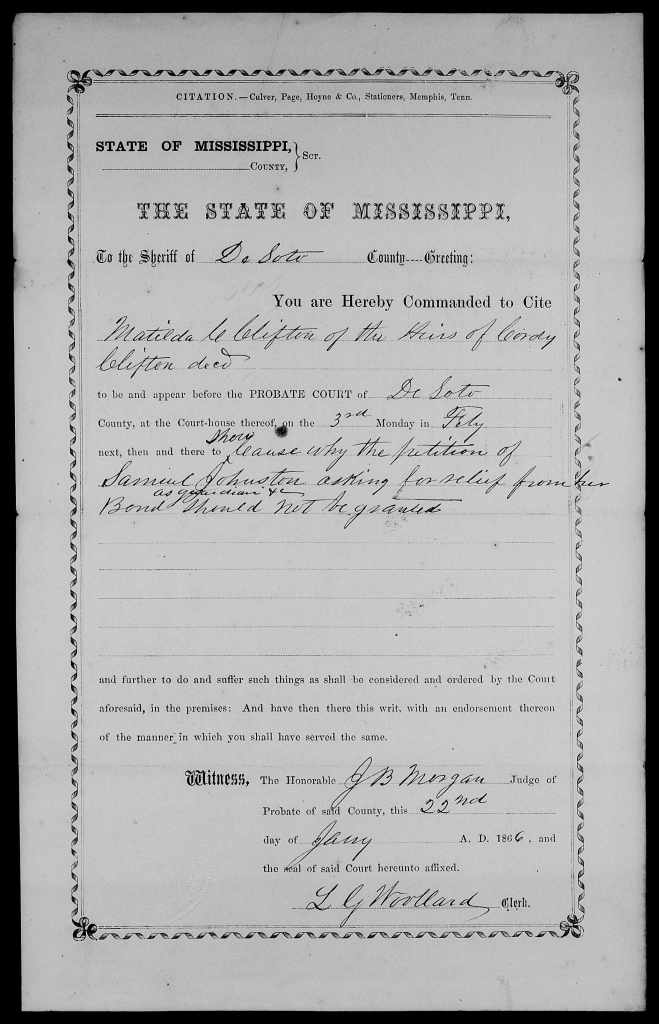 CITATION.—Culver, Page, Hoyne & Co., Stationers, Memphis, Tenn.
STATE OF MISSISSIPPI,
COUNTY, } Scr.
THE STATE OF MISSISSIPPI,
To the Sheriff of De Soto County----Greeting:
You are Hereby Commanded to Cite
Matilda C Clifton of the Heirs of Cordy
Clifton decd
to be and appear before the PROBATE COURT of De Soto
County, at the Court-house thereof, on the 3rd Monday in Feby
show
next, then and there to Cause why the petition of
Samuel Johnston asking for relief from her
as guardian &c
Bond should not be granted
and further to do and suffer such things as shall be considered and ordered by the Court
aforesaid, in the premises: And have then there this writ, with an endorsement thereon
of the manner in which you shall have served the same.
Witness, The Honorable J B Morgan Judge of
Probate of said County, this 22nd
day of Jany A. D. 1866, and
the seal of said Court hereunto affixed.
L G Woollard Clerk.